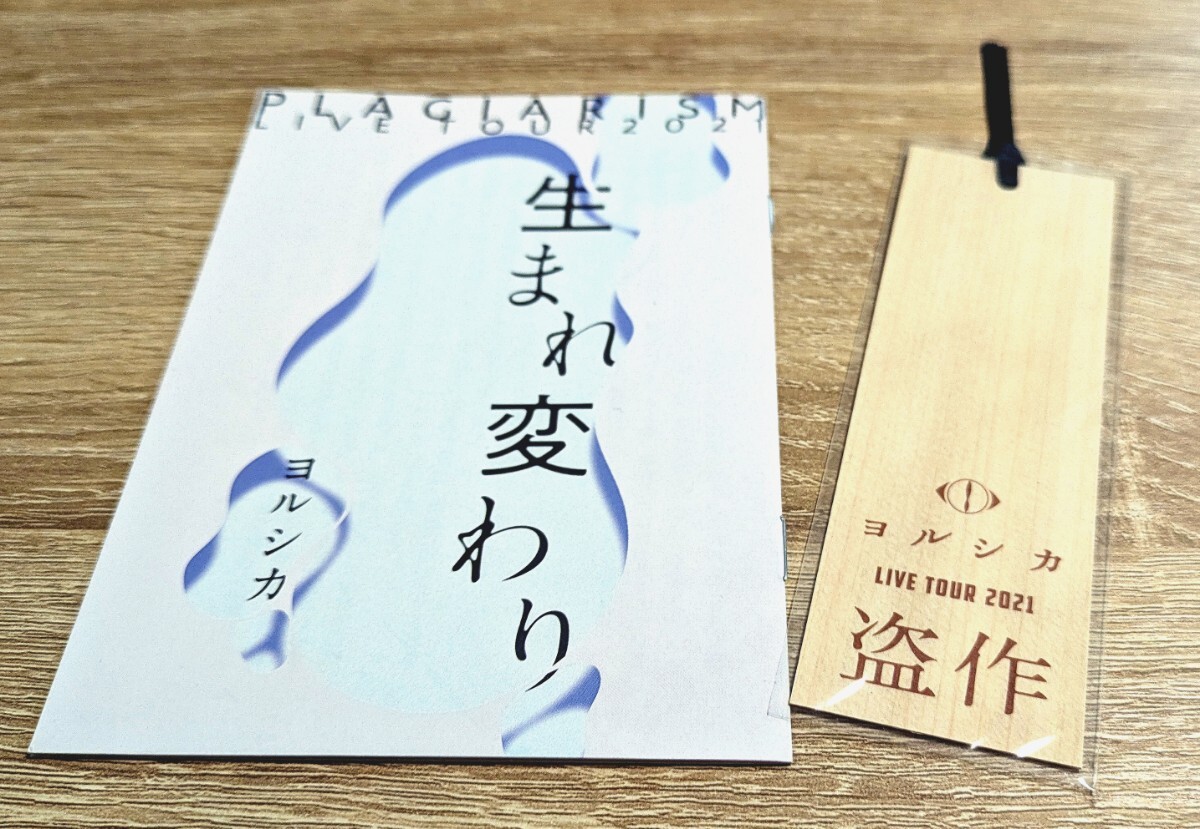 PLAGIARISM
LIVE TOUR2021
生まれ変わり
ヨルシカ
ヨルシカ
LIVE TOUR 2021
盗作